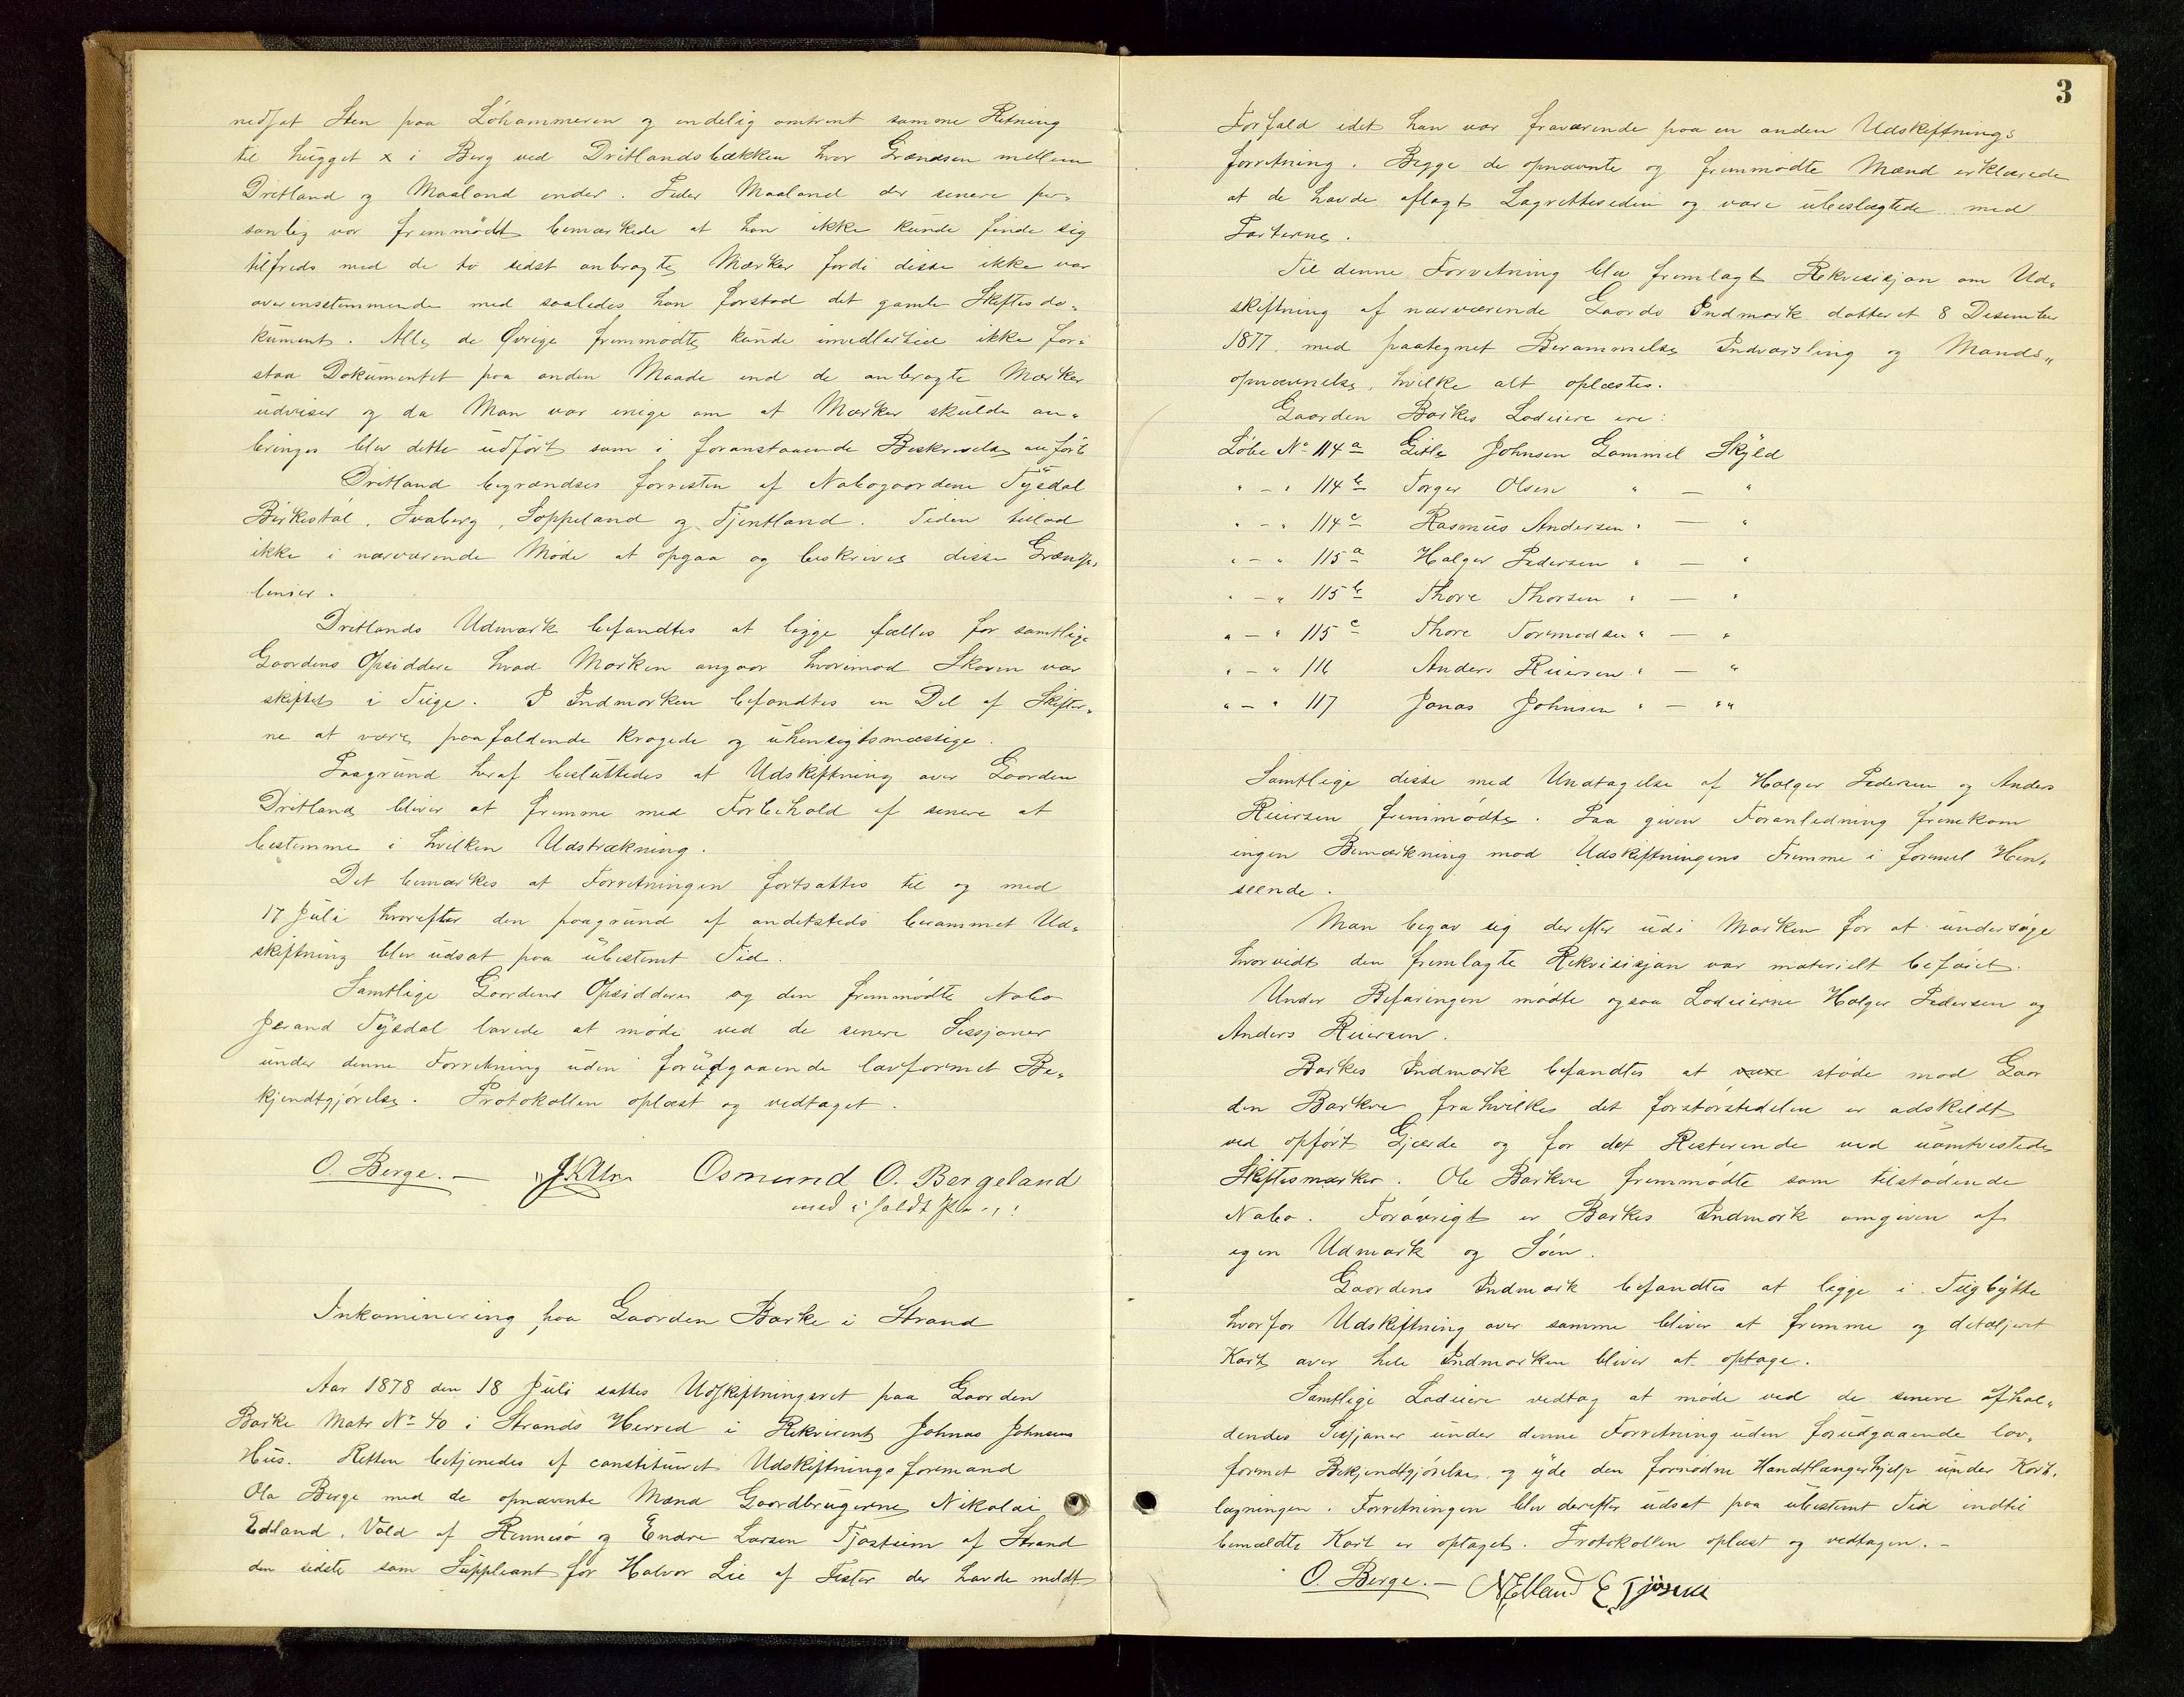 nedsat Sten paa Löhammeren og endelig omtrent samme Retning
til hugget x i Berg ved Dritlandsbækken hvor Grændsen mellem
Dritland og Maaland ender. Peder Maaland der senere per-
sonlig var fremmödt bemærkede at han ikke kunde finde sig
tilfreds med de to sidst anbragte Mærker fordi disse ikke var
overensstemmende med saaledes han forstod det gamle Skiftesdo-
kument. Alle de Øvrige fremmødte kunde imidlertid ikke for-
staa Dokumentet paa anden Maade end de anbragte Mærker
udviser og da Man var enige om at Mærker skulde an-
bringes blev dette udfört som i foranstaaende Beskrivelse anfört
Dritland begrændses forresten af Nabogaardene Tysdal
Birkestøl, Svaberg, Soppeland og Tjentland. Tiden tillod
ikke i nærværende Møde at opgaa og beskrives disse Grænse-
linier.
Dritlands Udmark befandtes at ligge fælles for samtlige
Gaardens Opsiddere hvad Marken angaar hvorimod Skoven var
skiftet i Teige. I Indmarken befandtes en Del af Skifter-
ne at være paafaldende krogede og uhensigtsmæssige.
Paagrund heraf besluttedes at Udskiftning over Gaarden
Dritland bliver at fremme med Forbehold af senere at
bestemme i hvilken Udstrækning.
Det bemærkes at Forretningen fortsattes til og med
17 Juli hvorefter den paagrund af andetsteds berammet Ud-
skiftning blev udsat paa ubestemt Tid.
Samtlige Gaardens Opsiddere og den fremmødte Nabo
Jerand Tysdal lovede at møde ved de senere Sessjoner
under denne Forretning uden forudgaaende lovformet Be-
kjendtgjörelse. Protokollen oplæst og vedtaget.
O. Berge.— Osmund O. Bergeland
med i holdt Pen
Inkaminering paa Gaarden Barke i Strand
Aar 1878 den 18 Juli sattes Udskiftningsret paa Gaarden
Barke Matr No 40 i Strands Herred i Rekvirent Johnas Johnsens
Hus. Retten betjenedes af constitueret Udskiftningsformand
Ola Berge med de opnævnte Mænd Gaardbrugerne Nikolai
Edland, Vold af Rennesö og Endre Larsen Tjøstheim af Strand
den sidste som Suppleant for Halvor Lie af Fister der havde meldt
3
Forfald idet han var fraværende paa en anden Udskiftnings
forretning. Begge de opnævnte og fremmødte Mænd erklærede
at de havde aflagt Lagrettesedien og vare ubeslægtede med
Parterne.
Til denne Forretning blev fremlagt Rekvisisjon om Ud-
skiftning af nærværende Gaards Indmark datteret 8 Desember
1877 med paategnet Berammelse Indvarsling og Mands-
opnævnelse, hvilke alt oplæstes.
Gaarden Barkes Lodeiere ere:
Löbe No 114 a Gitle Johnsen Gammel Skyld
" - " 114 b Torger Olsen " — "
" - " 114 c Rasmus Andersen " — "
" - " 115 a Holger Pedersen " — "
" - " 115 b Thore Thorsen " — "
" - " 115 c Thore Tormodsen " — "
" - " 116 Anders Reiersen " — "
" - " 117 Jonas Johnsen " — "
Samtlige disse med Undtagelse af Holger Pedersen og Anders
Reiersen fremmødte. Paa given Foranledning fremkom
ingen Bemærkning mod Udskiftningens Fremme i formel Hen-
seende.
Man begav sig derefter udi Marken for at undersöge
hvorvidt den fremlagte Rekvisisjon var materielt beføiet.
Under Befaringen mödte ogsaa Lodeierne Holger Pedersen og
Anders Reiersen.
Barkes Indmark befandtes at være støde mod Gaar
den Barkve fra hvilke det forstørstedelen er adskildt
ved opført Gjærde og for det Resterende ved uomtvistede
Skiftesmærker. Ole Barkve fremmødte som tilstødende
Nabo. Forøvrigt er Barkes Indmark omgiven af
egen Udmark og Søen.
Gaardens Indmark befandtes at ligge i Teigbytte
hvorfor Udskiftning over samme bliver at fremme og detaljeret
Kart over hele Indmarken bliver at optage.
Samtlige Lodeiere vedtog at møde ved de senere afhol-
dendes Sesjoner under denne Forretning uden forudgaaende lov-
formet Bekjendtgjörelse, og yde den fornødne Handtlangerhjelp under Kort-
lægningen. Forretningen blev derefter udsat paa ubestemt Tid indtil
bemældte Kart er optaget. Protokollen oplæst og vedtagen. —
O. Berge.— N Edland E Tjøstem